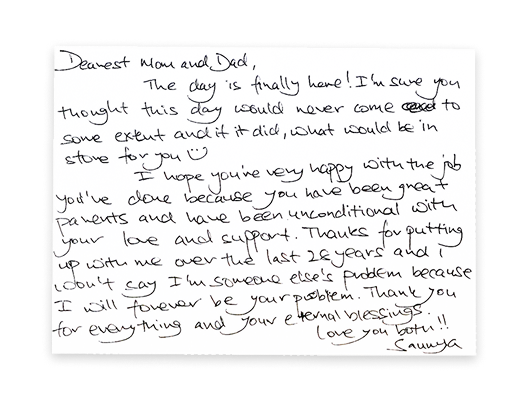 Dearest Mom and Dad,
The day is finally here! I'm sure you
thought this day would never come to
some extent and if it did, what would be in
store for you
I hope you're very happy with the job
you've done because you have been great
parents and have been unconditional with
your love and support. Thanks for putting
up with me over the last 28 years and i
won't say I'm someone else's problem because
I will forever be your problem. Thank you
for everything and your eternal blessings.
Love you both!!
Saumya